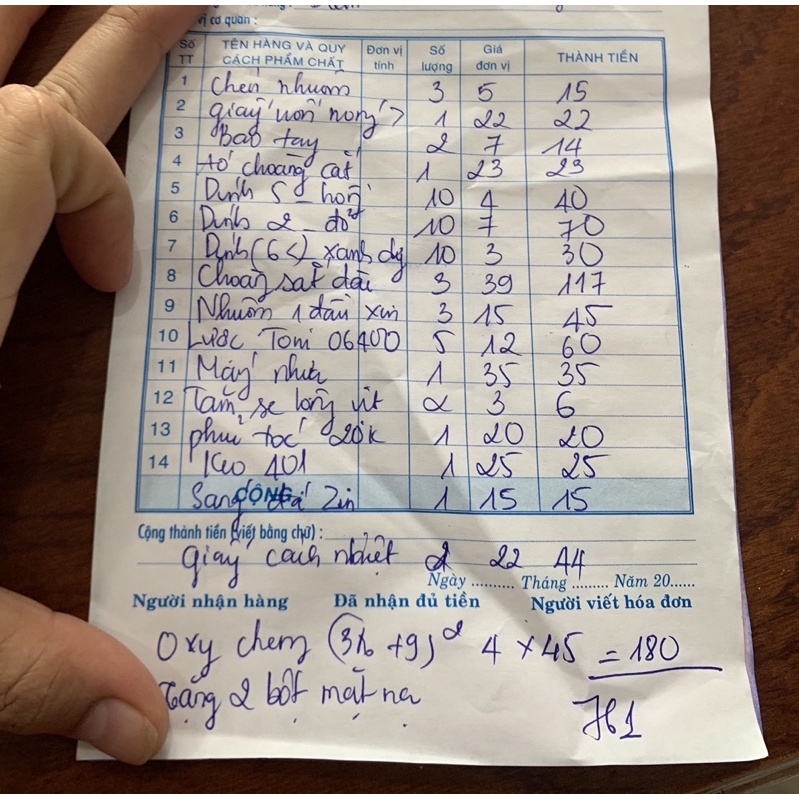 vị cơ quan :
Số TT TÊN HÀNG VÀ QUY CÁCH PHẨM CHẤT Đơn vị tính Số lượng Giá đơn vị THÀNH TIỀN
1 Chén nhuộm 3 5 15
2 giấy uốn nóng 1 22 22
3 Bao tay 2 7 14
4 choàng cắt 1 23 23
5 Dính 5 - 10 4 40
6 Dính 2 - đỏ 10 7 70
7 Dính (6<) xanh 10 3 30
8 Choàng sắt dài 3 39 117
9 Nhuộm 1 đầu xịn 3 15 45
10 Lược Toni 06400 5 12 60
11 Máy nhựa 1 35 35
12 Tăm se lông vịt 2 3 6
13 phủi tóc 20k 1 20 20
14 Keo 401 1 25 25
CỘNG
Sang Zin 1 15 15
Cộng thành tiền (viết bằng chữ) :
giấy cách nhiệt 2 22 44
Ngày .......... Tháng ......... Năm 20......
Người nhận hàng Đã nhận đủ tiền Người viết hóa đơn
Oxy chem +9) 4 x 45 = 180
tặng 2 bột mặt nạ
761